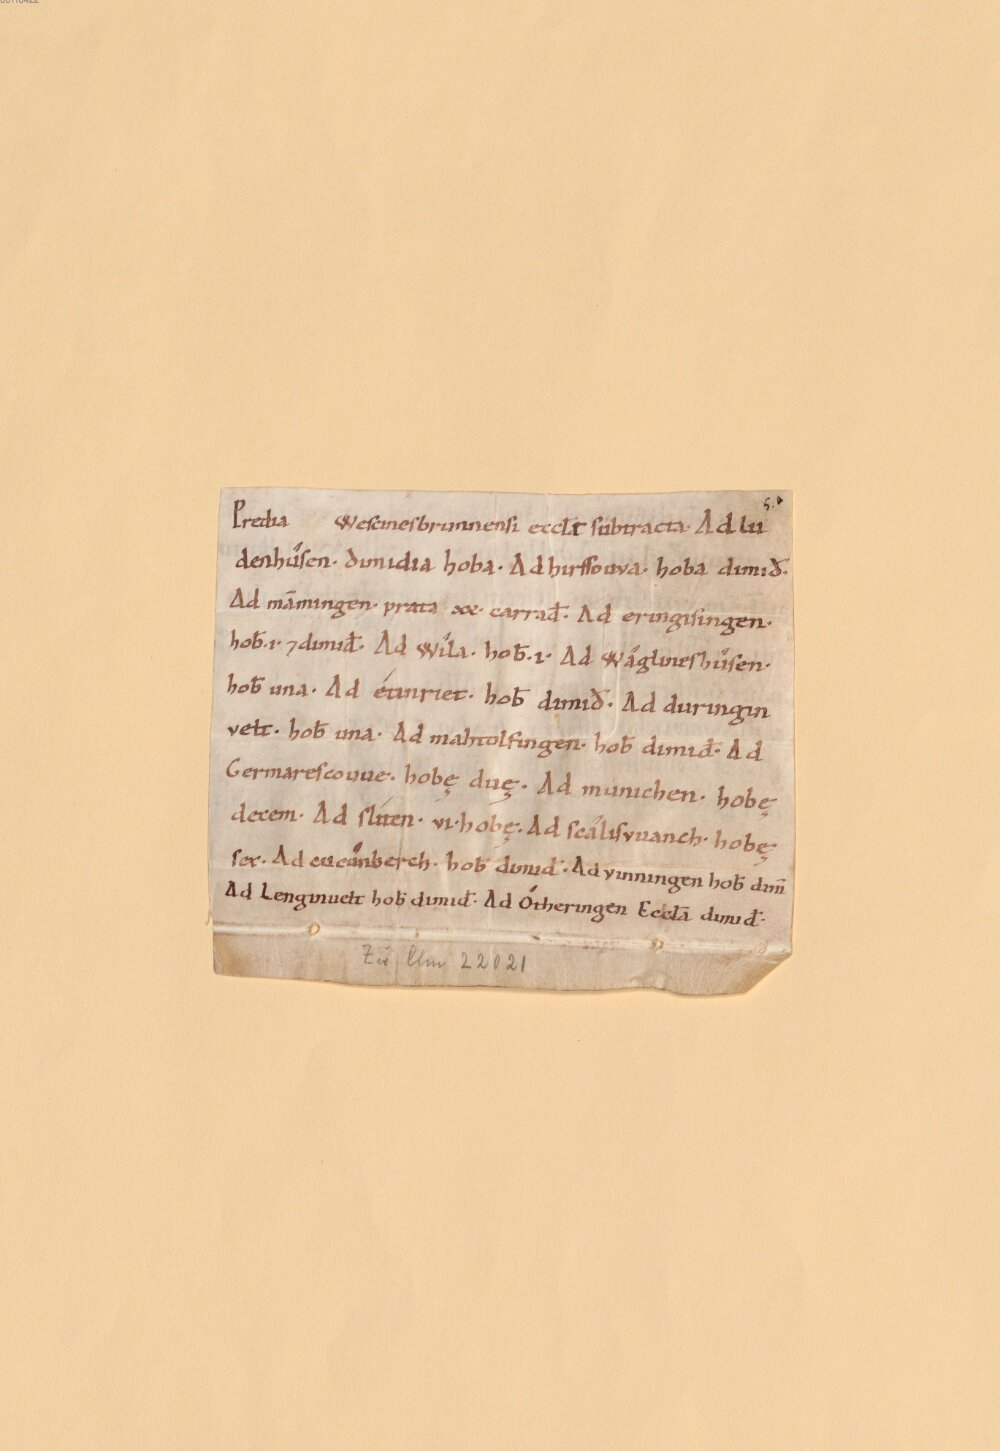 5.
Predia Wescinesbrunnensi ecclē subtracta. Ad lu
denhúsen. dimidia hoba. Ad hirssouva. hoba dimid̄.
Ad māmingen. prata xx. carrad̄. Ad eringisingen.
hob̄.1. 7 dimid̄. Ad Wíla. hob̄.1. Ad Wáglineshúsen.
hob̄ una. Ad étinriet. hob̄ dimid̄. Ad duringin
velt. hob̄ una. Ad mahtolfingen. hob̄ dimid̄. Ad
Germarescouue. hobę duę. Ad múnichen. hobę
decem. Ad slíten. vi. hobę. Ad scálisvuanch. hobę
sex. Ad berch. hob̄ dimid̄. Ad vinningen hob̄ dim̄
Ad Lenginvelt hob̄ dimid̄. Ad Ótheringen Ecclā dimid̄.
Zu Clm 22021